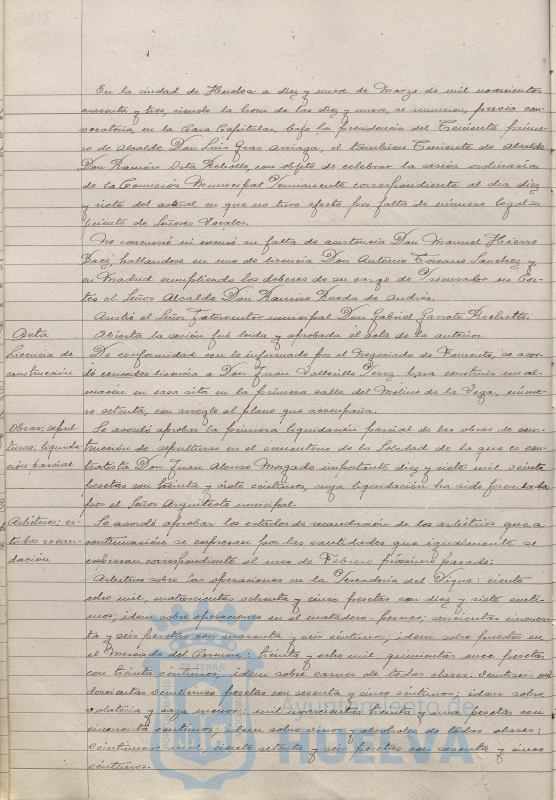 En la ciudad de Huelva a diez y nueve de Marzo de mil novecientos
cuarenta y tres, siendo la hora de las diez y nueve, se reunieron, previa con-
vocatoria, en la Casa Capitular, bajo la presidencia del Teniente prime-
ro de Alcalde Don Luis Gras Arriaga, el tambien Teniente de Alcalde
Don Ramón Rebollo, con objeto de celebrar la sesión ordinaria
de la Comisión Municipal Permanente correspondiente al dia diez
y siete del actual en que no tuvo efecto por falta de número legal su-
ficiente de Señores Vocales.
No concurrió ni excusó su falta de asistencia Don Manuel Hierro
Baez, hallandose en uso de licencia Don Antonio Toscano Sanchez y
en Madrid cumpliendo los deberes de su cargo de Procurador en Cor-
tes el Señor Alcalde Don Ramiro Rueda de Andrés.
Asistió el Señor Interventor municipal Don Gabriel Garrote
Acta
Abierta la sesión fué leida y aprobada el acta de la anterior.
Licencia de
construcción
De conformidad con lo informado por el Negociado de Fomento, se acor-
dó conceder licencia a Don Juan Vallecillo Perez para construir un al-
macén en casa sita en la primera calle del Molino de la Vega, núme-
ro setenta, con arreglo al plano que acompaña.
Obras; sepul-
turas; liquida-
ción parcial
Se acordó aprobar la primera liquidación parcial de las obras de cons-
trucción de sepulturas en el cementerio de la Soledad de la que es con-
tratista Don Juan Alonso Morgado importante diez y siete mil veinte
pesetas con treinta y siete céntimos, cuya liquidación ha sido formulada
por el Señor Arquitecto municipal.
Arbitrios; es-
tados recau-
dación
Se acordó aprobar los estados de recaudación de los arbitrios que a
continuación se expresan por las cantidades que igualmente se
expresan correspondiente al mes de Febrero próximo pasado:
Arbitrios sobre las operaciones en la Pescaderia del Dique: ciento
ocho mil, cuatrocientas ochenta y cinco pesetas con diez y siete cénti-
mos; idem sobre operaciones en el matadero seiscientas cincuen-
ta y seis pesetas con cuarenta y seis céntimos; idem sobre puestos en
el Mercado del Carmen: treinta y ocho mil quinientas once pesetas
con treinta céntimos; idem sobre carnes de todas clases: veintiseis mil
doscientas veintiuna pesetas con sesenta y cinco céntimos; idem sobre
volateria y caza menor: mil novecientas treinta y una pesetas con
cincuenta céntimos; idem sobre vinos y alcoholes de todas clases;
mil, ciento setenta y seis pesetas con sesenta y cinco
céntimos.
Ayuntamiento de
HUELVA